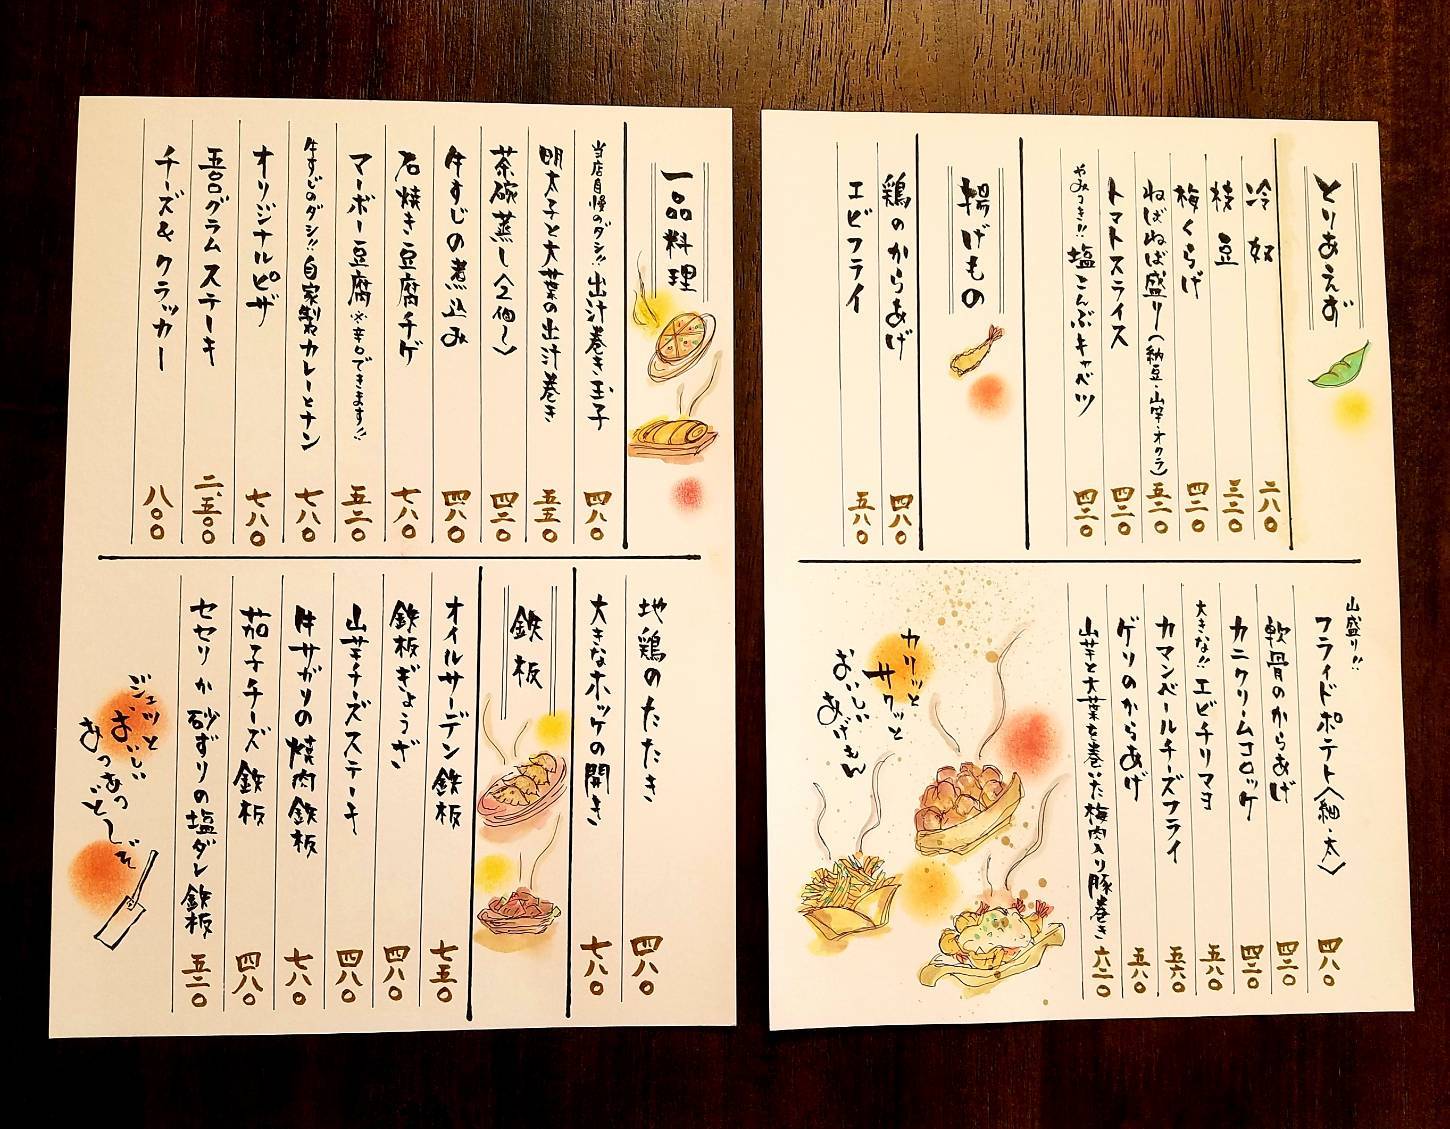 とりあえず
冷奴 二八〇
枝豆 三三〇
梅くらげ 四二〇
ねばねば盛り(納豆・山芋・オクラ) 五二〇
トマトスライス 四二〇
やみつき!!塩こんぶキャベツ 四二〇
揚げもの
鶏のからあげ 四八〇
エビフライ 五八〇
山盛り!!フライドポテト(細・太) 四八〇
軟骨のからあげ 四二〇
カニクリームコロッケ 四二〇
大きな!!エビチリマヨ 五八〇
カマンベールチーズフライ 五六〇
ゲソのからあげ 五八〇
山芋と大葉を巻いた梅肉入り豚巻き 六二〇
カリッと
サクッと
おいしい
あげもん
一品料理
当店自慢のダシ!!出汁巻き玉子 四八〇
明太子と大葉の出汁巻き 五五〇
茶碗蒸し(2個〜) 四二〇
牛すじの煮込み 四八〇
石焼き豆腐チゲ 七八〇
マーボー豆腐※辛口できます!! 五二〇
牛すじのダシ!!自家製カレーとナン 七八〇
オリジナルピザ 七八〇
五〇〇グラムステーキ 二、五〇〇
チーズ&クラッカー 八〇〇
地鶏のたたき 四八〇
大きなホッケの開き 七八〇
鉄板
オイルサーデン鉄板 七五〇
鉄板ぎょうざ 四八〇
山芋チーズステーキ 四八〇
牛サガリの焼肉鉄板 七八〇
茄子チーズ鉄板 四八〇
セセリか砂ずりの塩ダレ鉄板 五二〇
ジュッと
おいしい
あつあつ
どーぞ